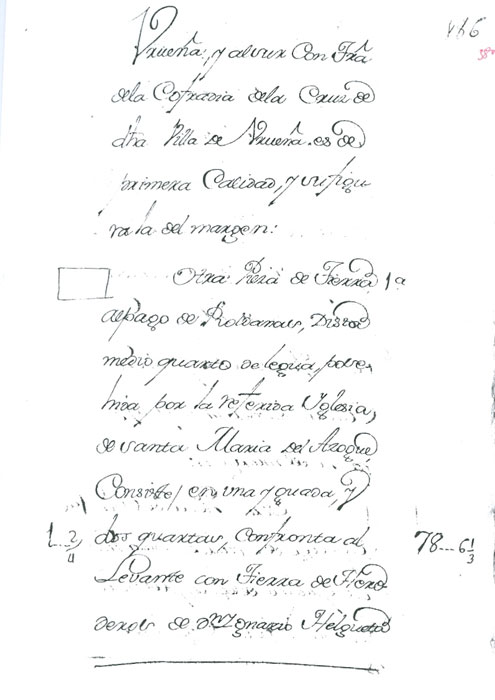 466
38
Vrueña, y al sur Con Tra
dela Cofradia dela Cruz de
dha Villa de Vrueña. es de
primera Calidad, y su figu
ra la del margen:
Otra Pieza de Tierra 1a
al pago de Roldanas, Dista
medio quarto de legua, pose
hida por la referida Yglesia,
de santa Maria del Azogue,
Consiste en una yguada, y
1...2/4 dos quartas, Confronta al, 78...6 1/3
Levante con Tierra de Here
deros de Dn Ygnacio Helguero